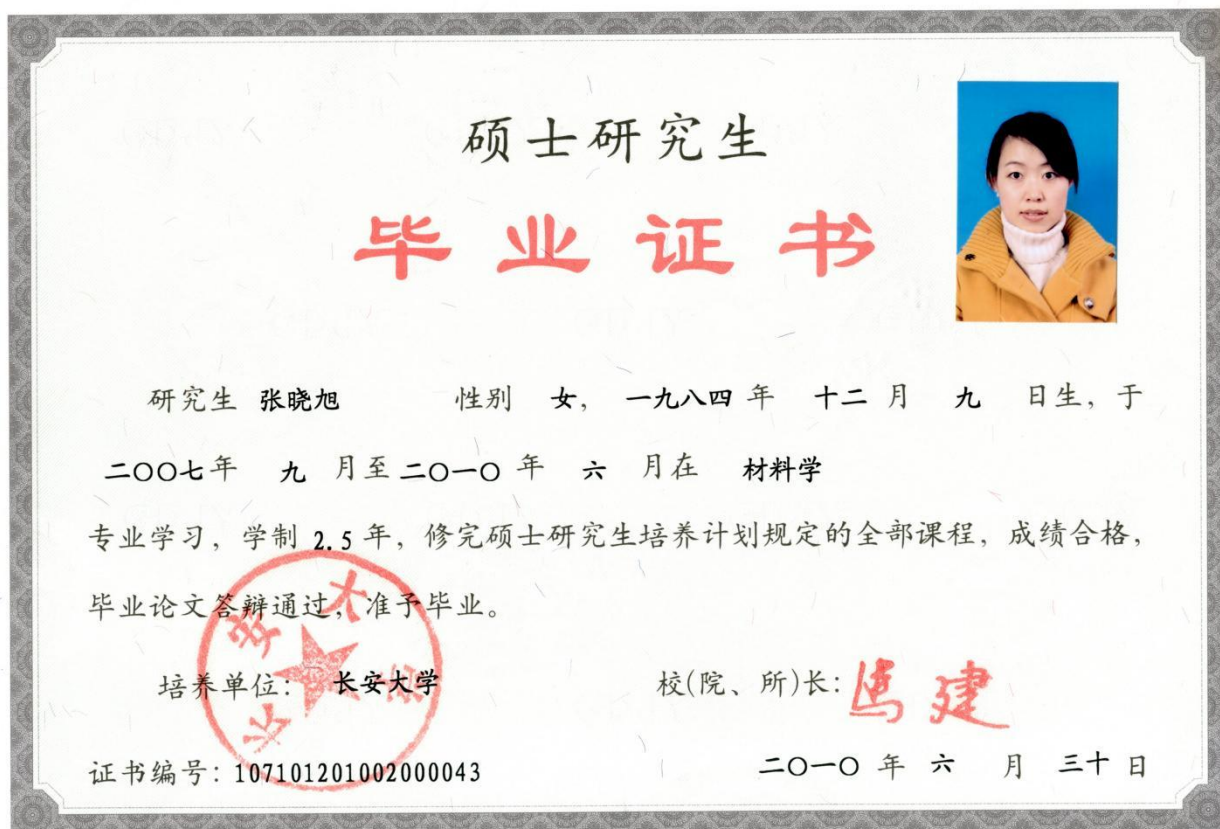 硕士研究生
毕业证书
研究生 张晓旭 性别 女, 一九八四 年 十二 月 九 日生, 于
二〇〇七年 九 月至二〇一〇 年 六 月在 材料学
专业学习, 学制 2.5 年, 修完硕士研究生培养计划规定的全部课程, 成绩合格,
毕业论文答辩通过, 准予毕业。
长安大学
培养单位: 长安大学
校(院、所)长: 马建
证书编号: 107101201002000043
二〇一〇 年 六 月 三十 日